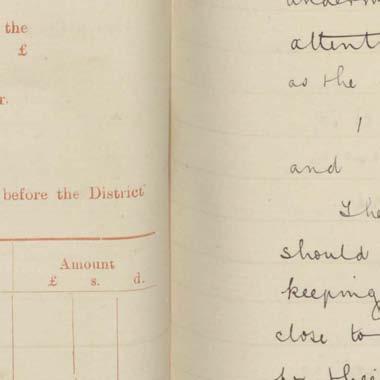 the
£
r.
before the District
Amount
£ s. d.
attent
as the
1
and
The
should
keeping
close to